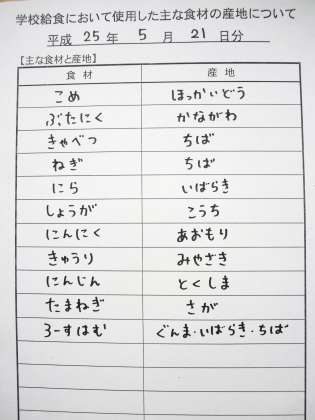 学校給食において使用した主な食材の産地について
平成 25 年 5 月 21 日分
【主な食材と産地】
食材 産地
こめ ほっかいどう
ぶたにく かながわ
きゃべつ ちば
ねぎ ちば
にら いばらき
しょうが こうち
にんにく あおもり
きゅうり みやざき
にんじん とくしま
たまねぎ さが
ろーすはむ ぐんま・いばらき・ちば